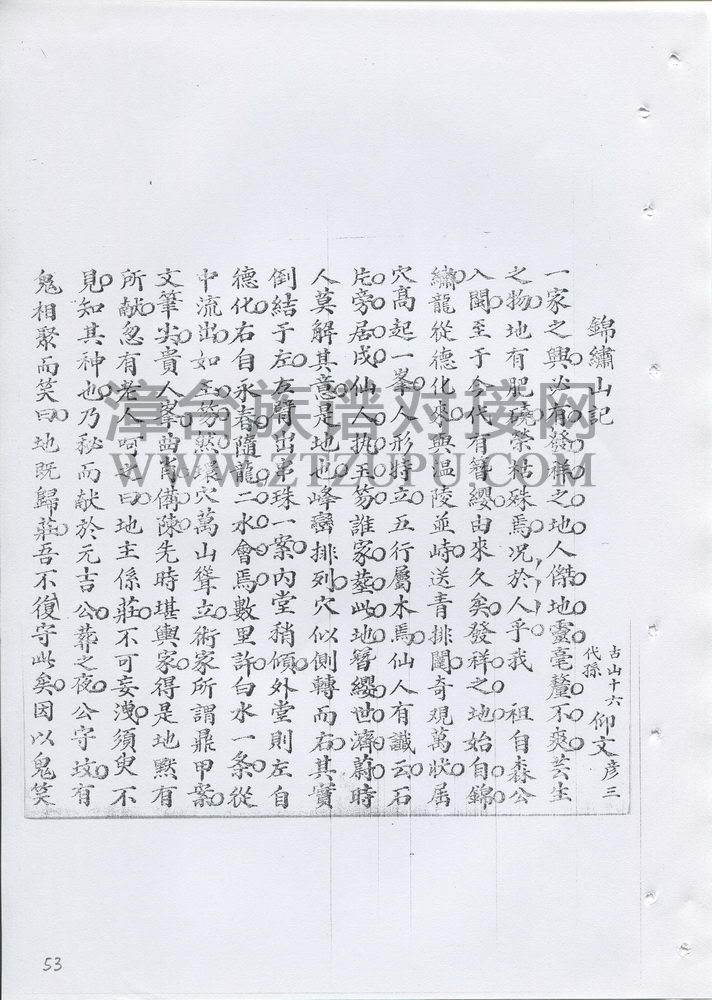 錦繡山記
古山十六代孫 仰文 彦三
一家之興必有發祥之地人傑地靈毫釐不爽芸生
之物地有肥磽榮枯殊焉况於人乎我 祖自森公
入閩至于今代有簪纓由來久矣發祥之地始自錦
繡龍從德化來與温陵並峙送青排闥奇观萬狀届
穴髙起一峯人形持立五行屬木焉仙人有讖云石
片旁居成仙人执玉笏誰家塟此地簪纓世濟蔚時
人莫解其意是地也峰巒排列穴似側轉而右其實
倒結于左左臂出串珠一案内堂稍傾外堂則左自
德化右自永春隨龍二水會焉數里許白水一条從
中流出如玉笏然環穴萬山聳立術家所謂鼎甲案
文筆尖貴人峯曲肖備陳先時堪輿家得是地黙有
所献忽有老人呵之曰地主係莊不可妄洩須臾不
見知其神也乃秘而献於元吉公葬之夜公守坟有
鬼相聚而笑曰地既歸莊吾不復守此矣因以鬼笑
漳台族谱对接网
WWW.ZTZUPU.COM
53